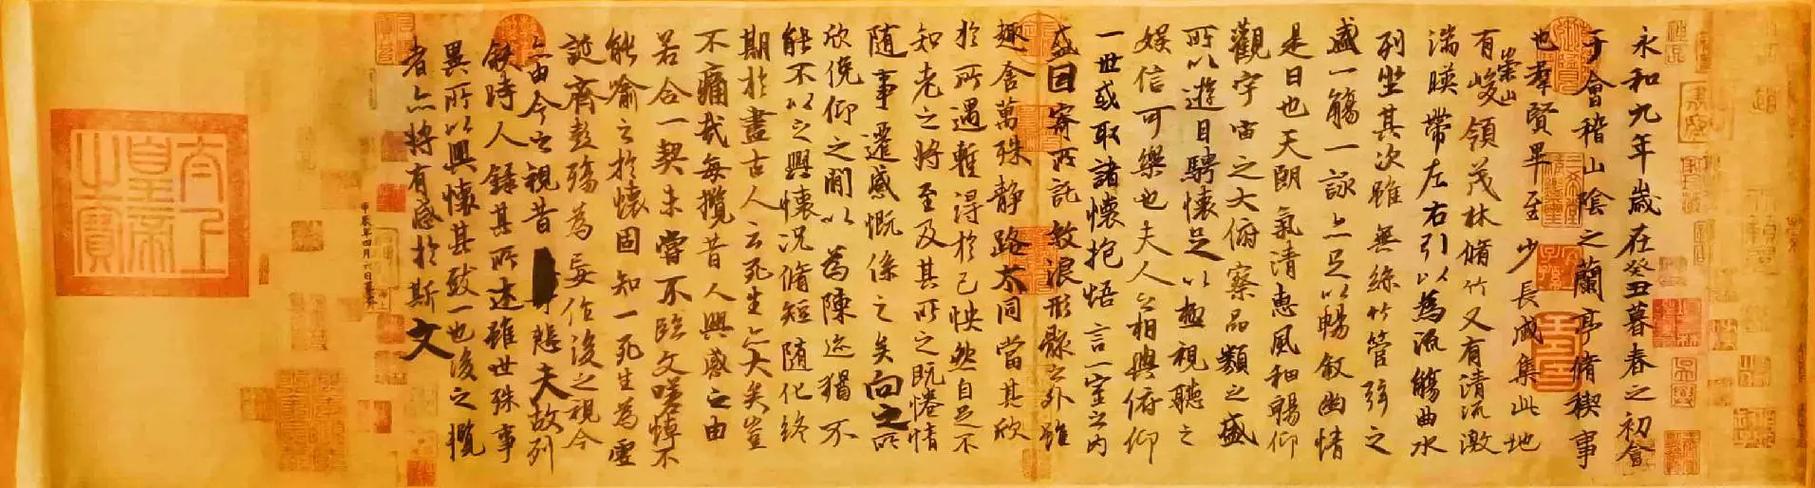 永和九年歲在癸丑暮春之初會
于會稽山陰之蘭亭脩稧事
也羣賢畢至少長咸集此地
有崇山峻領茂林脩竹又有清流激
湍暎帶左右引以為流觴曲水
列坐其次雖無絲竹管弦之
盛一觴一詠亦足以暢敘幽情
是日也天朗氣清惠風和暢仰
觀宇宙之大俯察品類之盛
所以遊目騁懷足以極視聽之
娛信可樂也夫人之相與俯仰
一世或取諸懷抱悟言一室之內
或因寄所託放浪形骸之外雖
趣舍萬殊靜躁不同當其欣
於所遇暫得於己怏然自足不
知老之將至及其所之既惓情
隨事遷感慨係之矣向之所
欣俛仰之間以為陳迹猶不
能不以之興懷況脩短隨化終
期於盡古人云死生亦大矣豈
不痛哉每攬昔人興感之由
若合一契未嘗不臨文嗟悼不
能喻之於懷固知一死生為虛
誕齊彭殤為妄作後之視今
亦由今之視昔悲夫故列
敘時人錄其所述雖世殊事
異所以興懷其致一也後之攬
者亦將有感於斯文
太上
皇帝
之寶